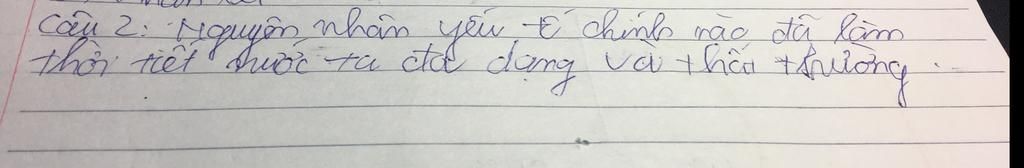 Câu 2: Nguyên nhân yếu tố chính nào đã làm
thời tiết nước ta đa dạng và thất thường